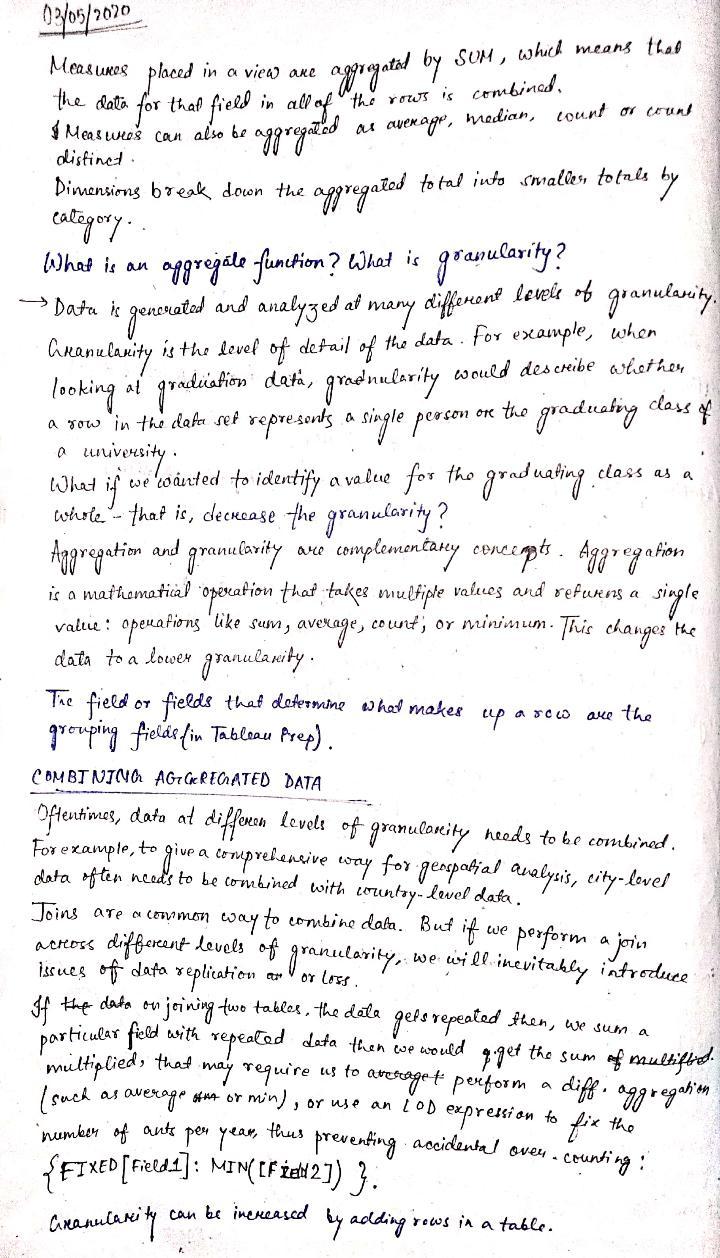 03/05/2020
Measures placed in a view are aggregated by SUM, which means that
the data for that field in all of the rows is combined.
Measures can also be aggregated as average, median, count or count
distinct.
Dimensions break down the aggregated total into smaller totals by
category.
What is an aggregate function? What is granularity?
→ Data is generated and analyzed at many different levels of granularity.
Granularity is the level of detail of the data. For example, when
looking at graduation data, gradnularity would describe whether
a row in the data set represents a single person or the graduating class of
a university.
What if we wanted to identify a value for the graduating class as a
whole - that is, decrease the granularity?
Aggregation and granularity are complementary concepts. Aggregation
is a mathematical operation that takes multiple values and returns a single
value: operations like sum, average, count, or minimum. This changes the
data to a lower granularity.
The field or fields that determine what makes up a row are the
grouping fields (in Tableau Prep).
COMBINING AGGREGATED DATA
Oftentimes, data at differen levels of granularity needs to be combined.
For example, to give a comprehensive way for geospatial analysis, city-level
data often needs to be combined with country-level data.
Joins are a common way to combine data. But if we perform a join
across different levels of granularity, we will inevitably introduce
issues of data replication or loss.
If the data on joining two tables, the data gets repeated then, we sum a
particular field with repeated data then we would get the sum of multiplied.
multiplied, that may require us to averaget perform a diff. aggregation
(such as average or min), or use an LOD expression to fix the
number of ants per year, thus preventing accidental over-counting:
{FIXED [Field1]: MIN([Field2]) }.
Granularity can be increased by adding rows in a table.